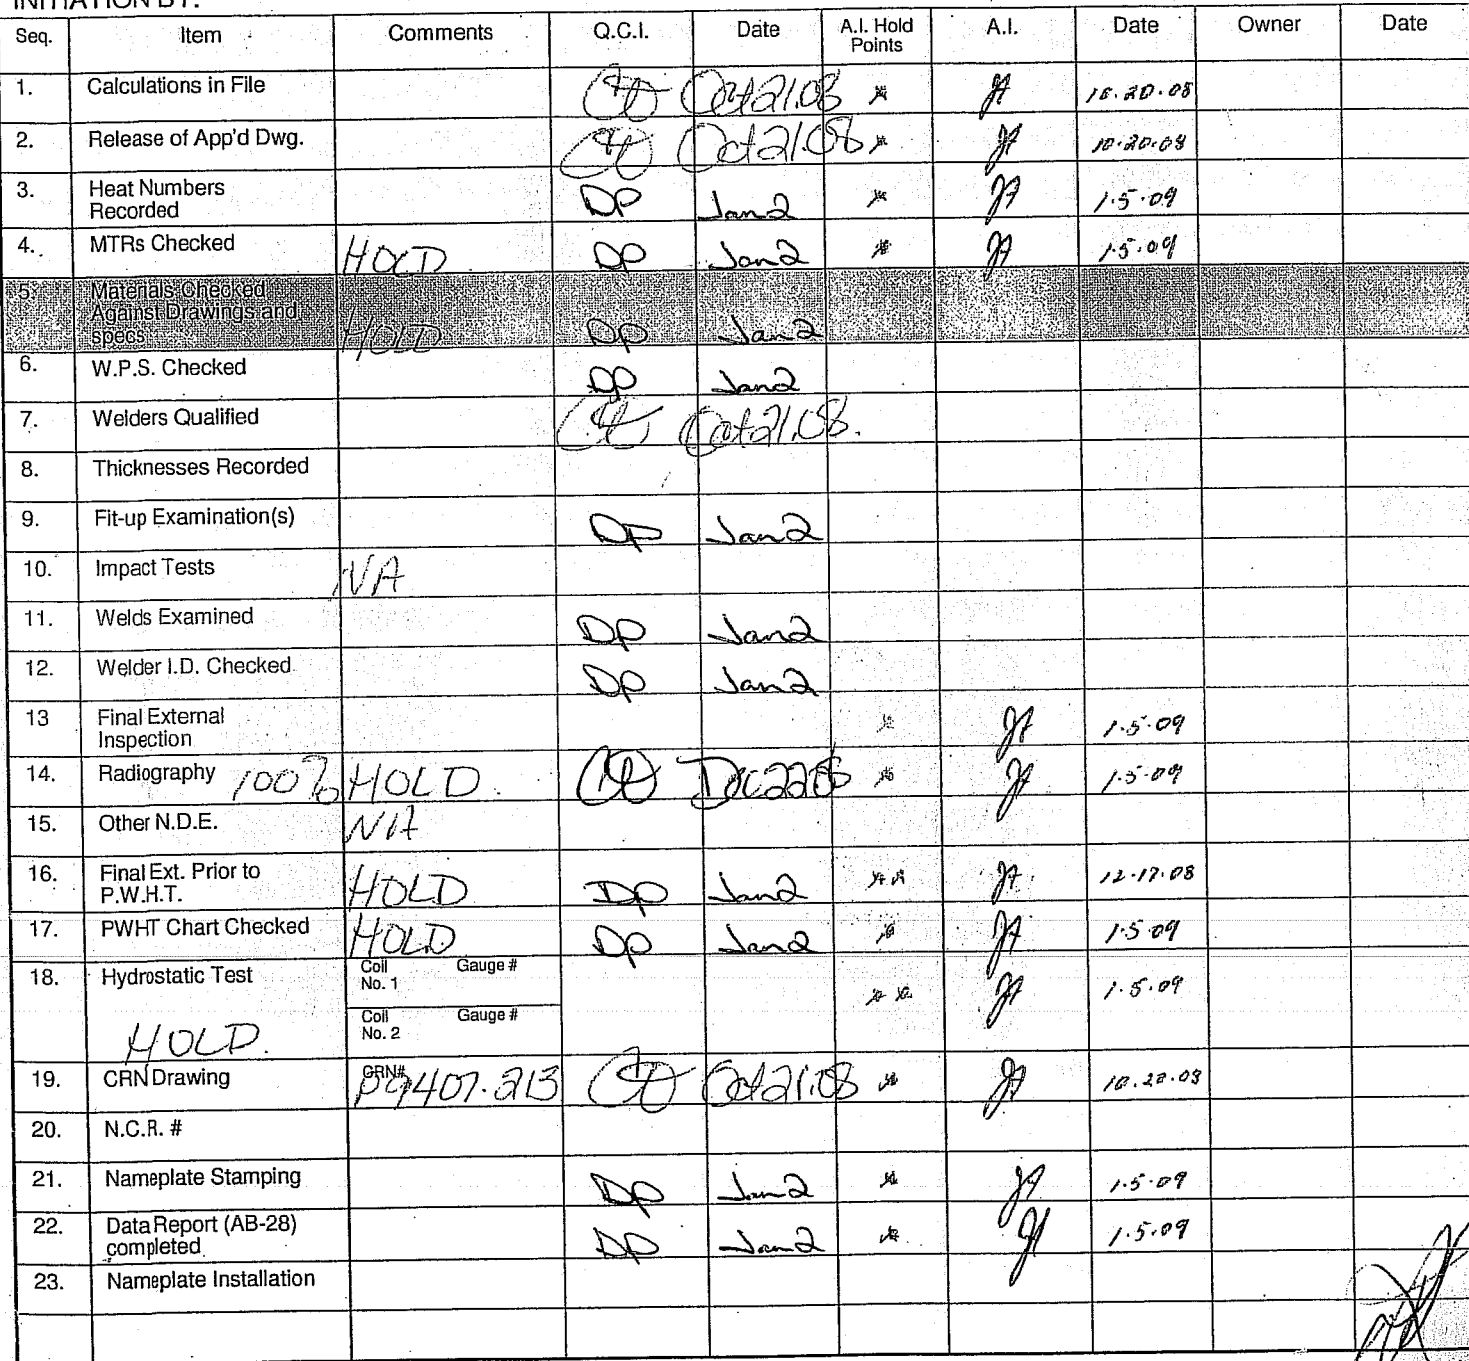 INITIATION BY:
Seq. Item Comments Q.C.I. Date A.I. Hold Points A.I. Date Owner Date
1. Calculations in File Oct 21.08 10.20.08
2. Release of App'd Dwg. Oct 21.08 10.20.08
3. Heat Numbers Recorded DP Jan 2 1.5.09
4. MTRs Checked HOLD DP Jan 2 1.5.09
5. Materials Checked Against Drawings and specs HOLD DP Jan 2
6. W.P.S. Checked DP Jan 2
7. Welders Qualified Oct 21.08.
8. Thicknesses Recorded
9. Fit-up Examination(s) DP Jan 2
10. Impact Tests NA
11. Welds Examined DP Jan 2
12. Welder I.D. Checked DP Jan 2
13 Final External Inspection 1.5.09
14. Radiography 100% HOLD. Dec 22 08 1.5.09
15. Other N.D.E. N/A
16. Final Ext. Prior to P.W.H.T. HOLD DP Jan 2 12.17.08
17. PWHT Chart Checked HOLD DP Jan 2 1.5.09
18. Hydrostatic Test HOLD. Coil No. 1 Gauge # 1.5.09
Coil No. 2 Gauge #
19. CRN Drawing CRN# P9407.213 Oct 21.08 10.20.08
20. N.C.R. #
21. Nameplate Stamping DP Jan 2 1.5.09
22. Data Report (AB-28) completed DP Jan 2 1.5.09
23. Nameplate Installation